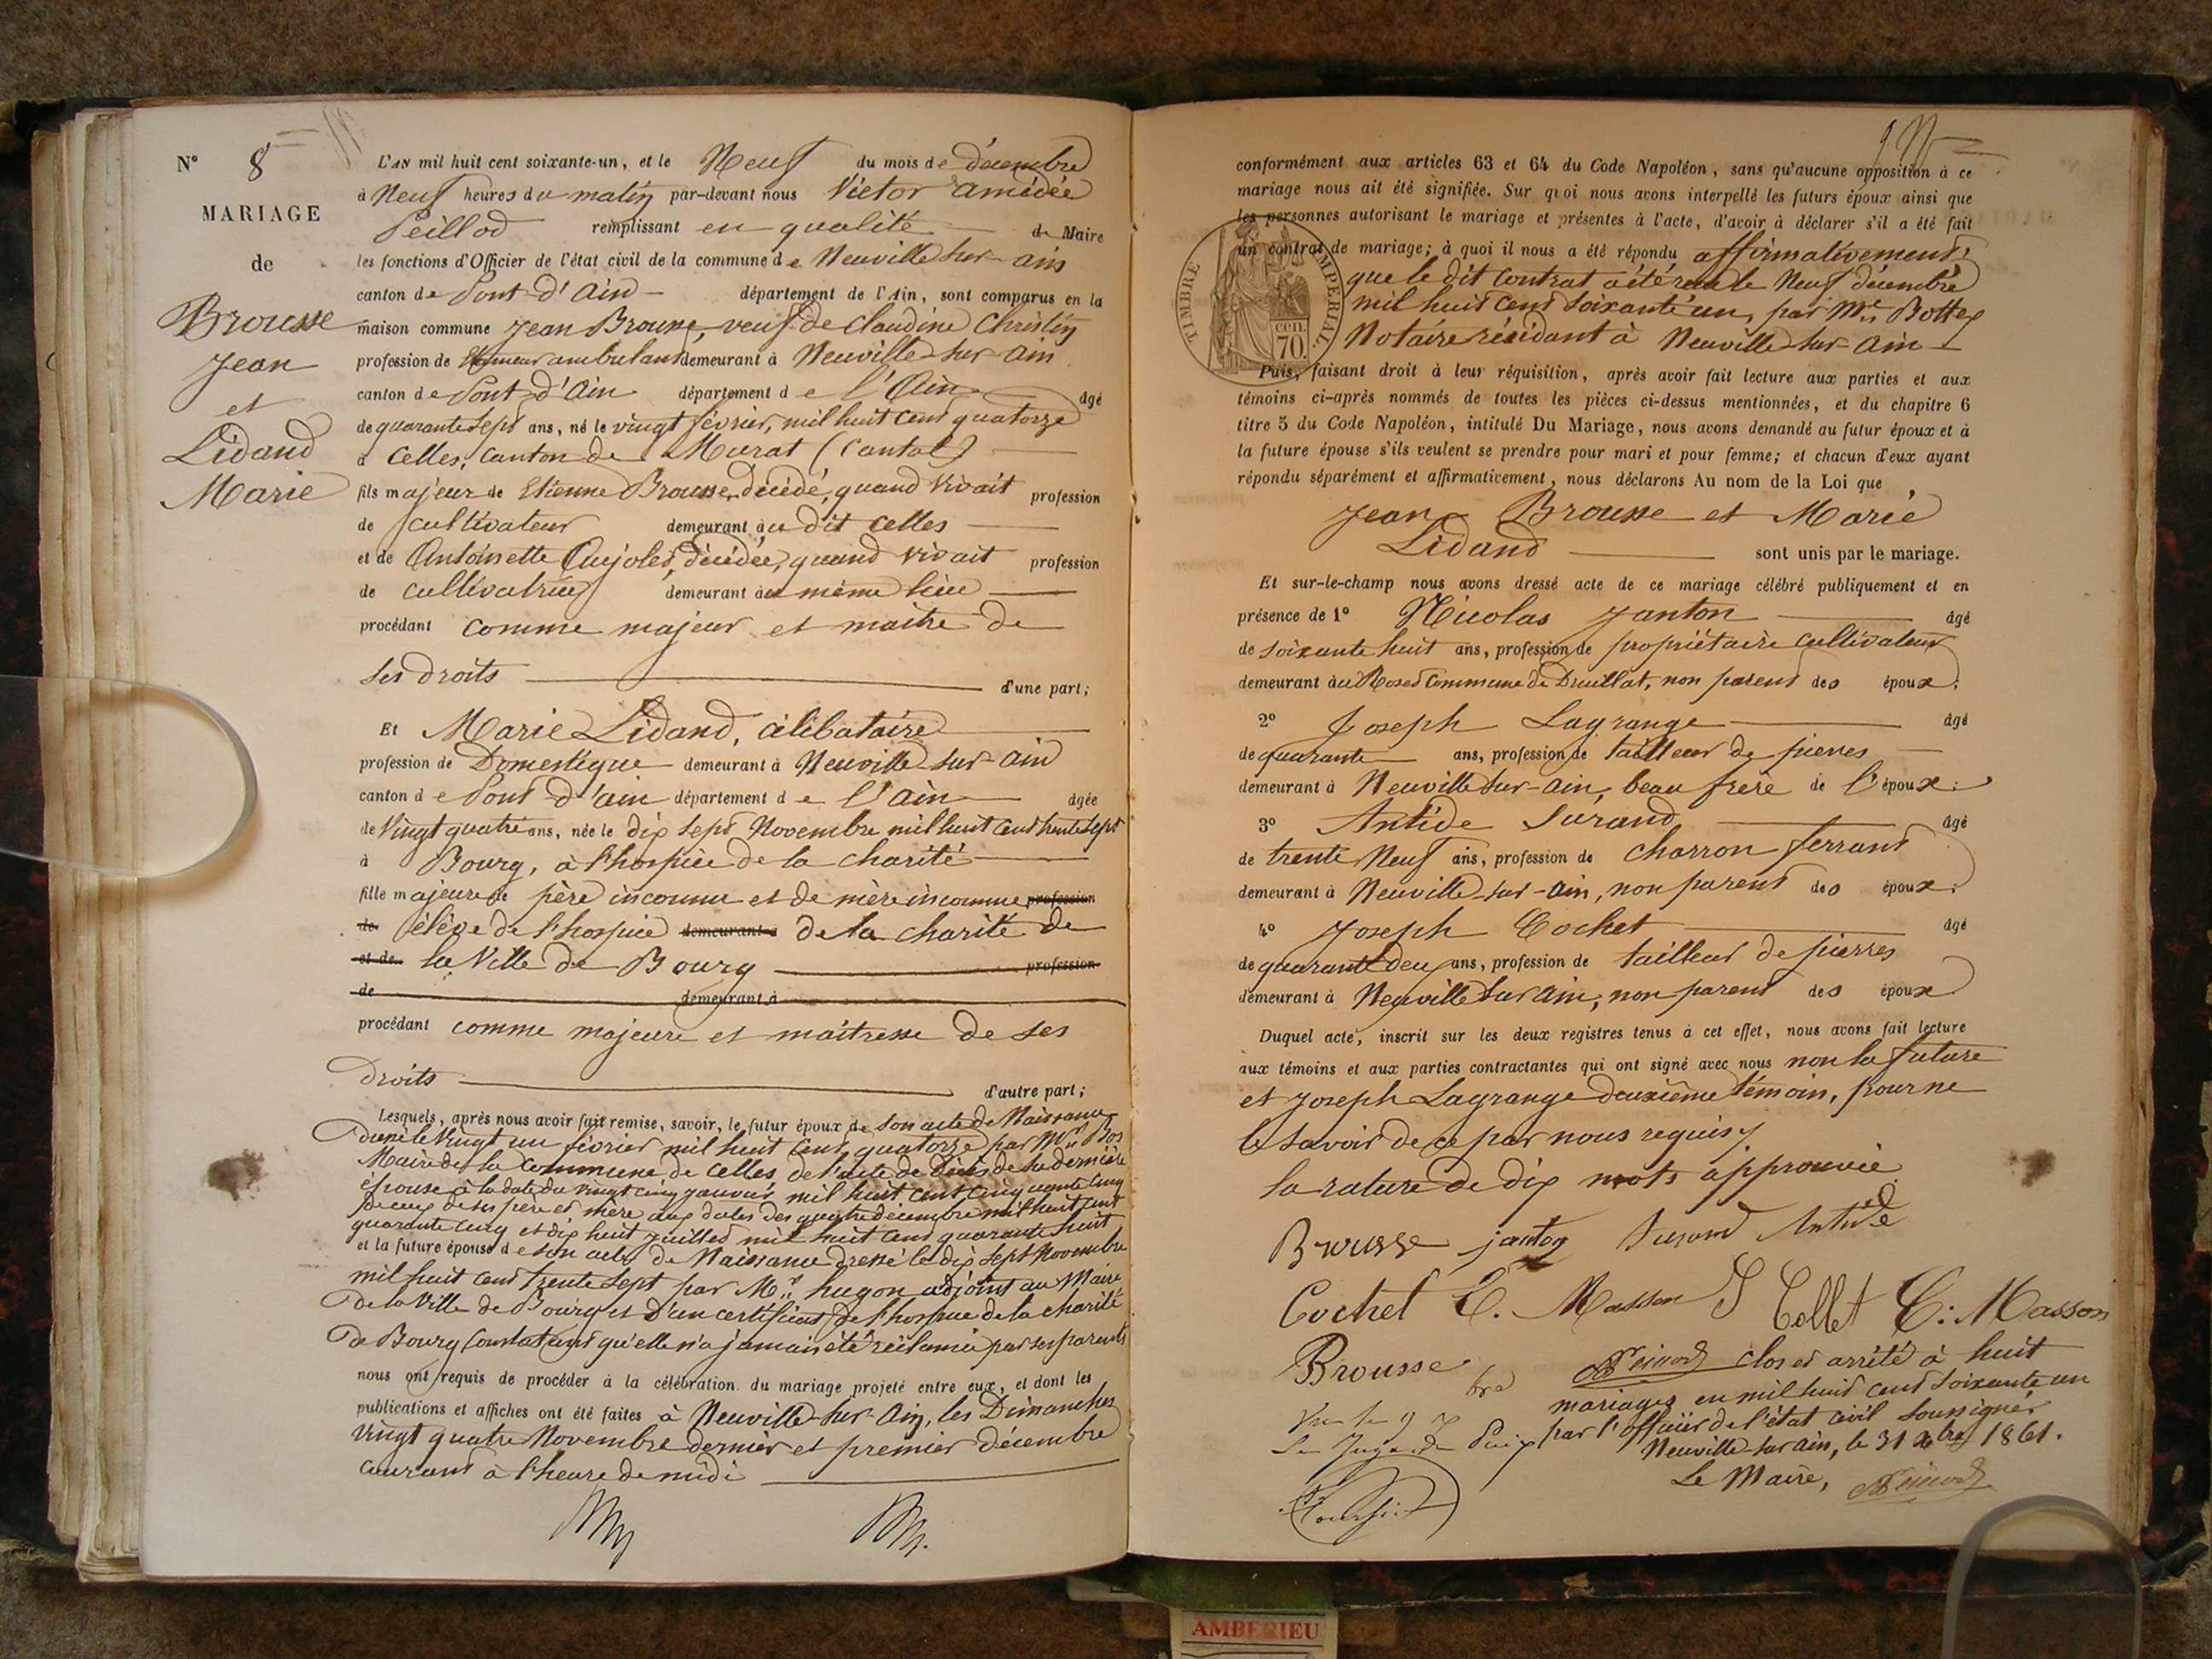 N° 8
MARIAGE
de
Brousse
Jean
et
Lidand
Marie
L'AN mil huit cent soixante-un, et le Neuf du mois de décembre
à Neuf heures du matin par-devant nous Victor amédée
Peillod remplissant en qualité de Maire
les fonctions d'Officier de l'état civil de la commune de Neuville sur-ain
canton de Pont-d'Ain département de l'Ain, sont comparus en la
maison commune Jean Brousse, veuf de Claudine Christin
profession de Etameur ambulant demeurant à Neuville-sur-Ain
canton de Pont-d'Ain département de l'Ain âgé
de quarante sept ans, né le vingt février, mil huit cent quatorze
à Celles, Canton de Murat (Cantal)
fils majeur de Etienne Brousse, décédé, quand vivait profession
de cultivateur demeurant au dit Celles
et de Antoinette Cujoles, décédée, quand vivait profession
de cultivatrice demeurant au même lieu
procédant comme majeur et maître de
ses droits d'une part;
Et Marie Lidand, célibataire
profession de Domestique demeurant à Neuville-sur-Ain
canton de Pont d'ain département de l'Ain âgée
de Vingt quatre ans, née le dix sept Novembre mil huit cent trente sept
à Bourg, à l'hospice de la charité
fille majeure de père inconnu et de mère inconnue profession
de élève de l'hospice demeurant à de la charité de
et de la Ville de Bourg profession
de demeurant à
procédant comme majeure et maîtresse de ses
droits d'autre part;
Lesquels, après nous avoir fait remise, savoir, le futur époux de son acte de Naissance
dressé le Vingt un février mil huit cent quatorze par Mr Bos
Maire de la Commune de Celles, de l'acte de décès de sa dernière
épouse à la date du vingt cinq janvier mil huit cent cinquante cinq
de ceux de ses père et mère aux dates des quatre décembre mil huit cent
quarante cinq et dix huit juillet mil huit cent quarante huit
et la future épouse de son acte de Naissance dressé le dix sept Novembre
mil huit cent trente sept par Mr hugon adjoint au Maire
de la Ville de Bourg et d'un certificat de l'hospice de la charité
de Bourg Constatant qu'elle n'a jamais été réclamée par ses parents
nous ont requis de procéder à la célébration du mariage projeté entre eux, et dont les
publications et affiches ont été faites à Neuville-sur-Ain, les Dimanches
vingt quatre Novembre dernier et premier décembre
courant à l'heure de midi
conformément aux articles 63 et 64 du Code Napoléon, sans qu'aucune opposition à ce
mariage nous ait été signifiée. Sur quoi nous avons interpellé les futurs époux ainsi que
les personnes autorisant le mariage et présentes à l'acte, d'avoir à déclarer s'il a été fait
un contrat de mariage; à quoi il nous a été répondu affirmativement,
que le dit Contrat a été reçu le Neuf décembre
mil huit cent soixante un, par Me Bottex
Notaire résidant à Neuville-sur-Ain
TIMBRE IMPERIAL
cen.
70.
Puis, faisant droit à leur réquisition, après avoir fait lecture aux parties et aux
témoins ci-après nommés de toutes les pièces ci-dessus mentionnées, et du chapitre 6
titre 5 du Code Napoléon, intitulé Du Mariage, nous avons demandé au futur époux et à
la future épouse s'ils veulent se prendre pour mari et pour femme; et chacun d'eux ayant
répondu séparément et affirmativement, nous déclarons Au nom de la Loi que
Jean Brousse et Marie
Lidand sont unis par le mariage.
Et sur-le-champ nous avons dressé acte de ce mariage célébré publiquement et en
présence de 1° Nicolas Janton âgé
de soixante huit ans, profession de propriétaire cultivateur
demeurant au Commune de Druillat, non parent des époux;
2° Joseph Lagrange âgé
de quarante ans, profession de tailleur de pierres
demeurant à Neuville-sur-Ain, beau frère de l'époux;
3° Antide Durand âgé
de trente Neuf ans, profession de charron ferrant
demeurant à Neuville-sur-ain, non parent des époux;
4° Joseph Cochet âgé
de quarante deux ans, profession de tailleur de pierres
demeurant à Neuville sur Ain, non parent des époux
Duquel acte, inscrit sur les deux registres tenus à cet effet, nous avons fait lecture
aux témoins et aux parties contractantes qui ont signé avec nous non la future
et Joseph Lagrange deuxième témoin, pour ne
le savoir de ce par nous requis
la rature de dix mots approuvée
Brousse janton Durand Antide
Cochet E. Masson J Collet C: Masson
Brousse
clos et arrêté à huit
mariages en mil huit cent soixante un
par l'officier de l'état civil soussigné
Neuville sur ain, le 31 Xbre 1861.
Le Maire,
Le Juge de Paix
AMBERIEU